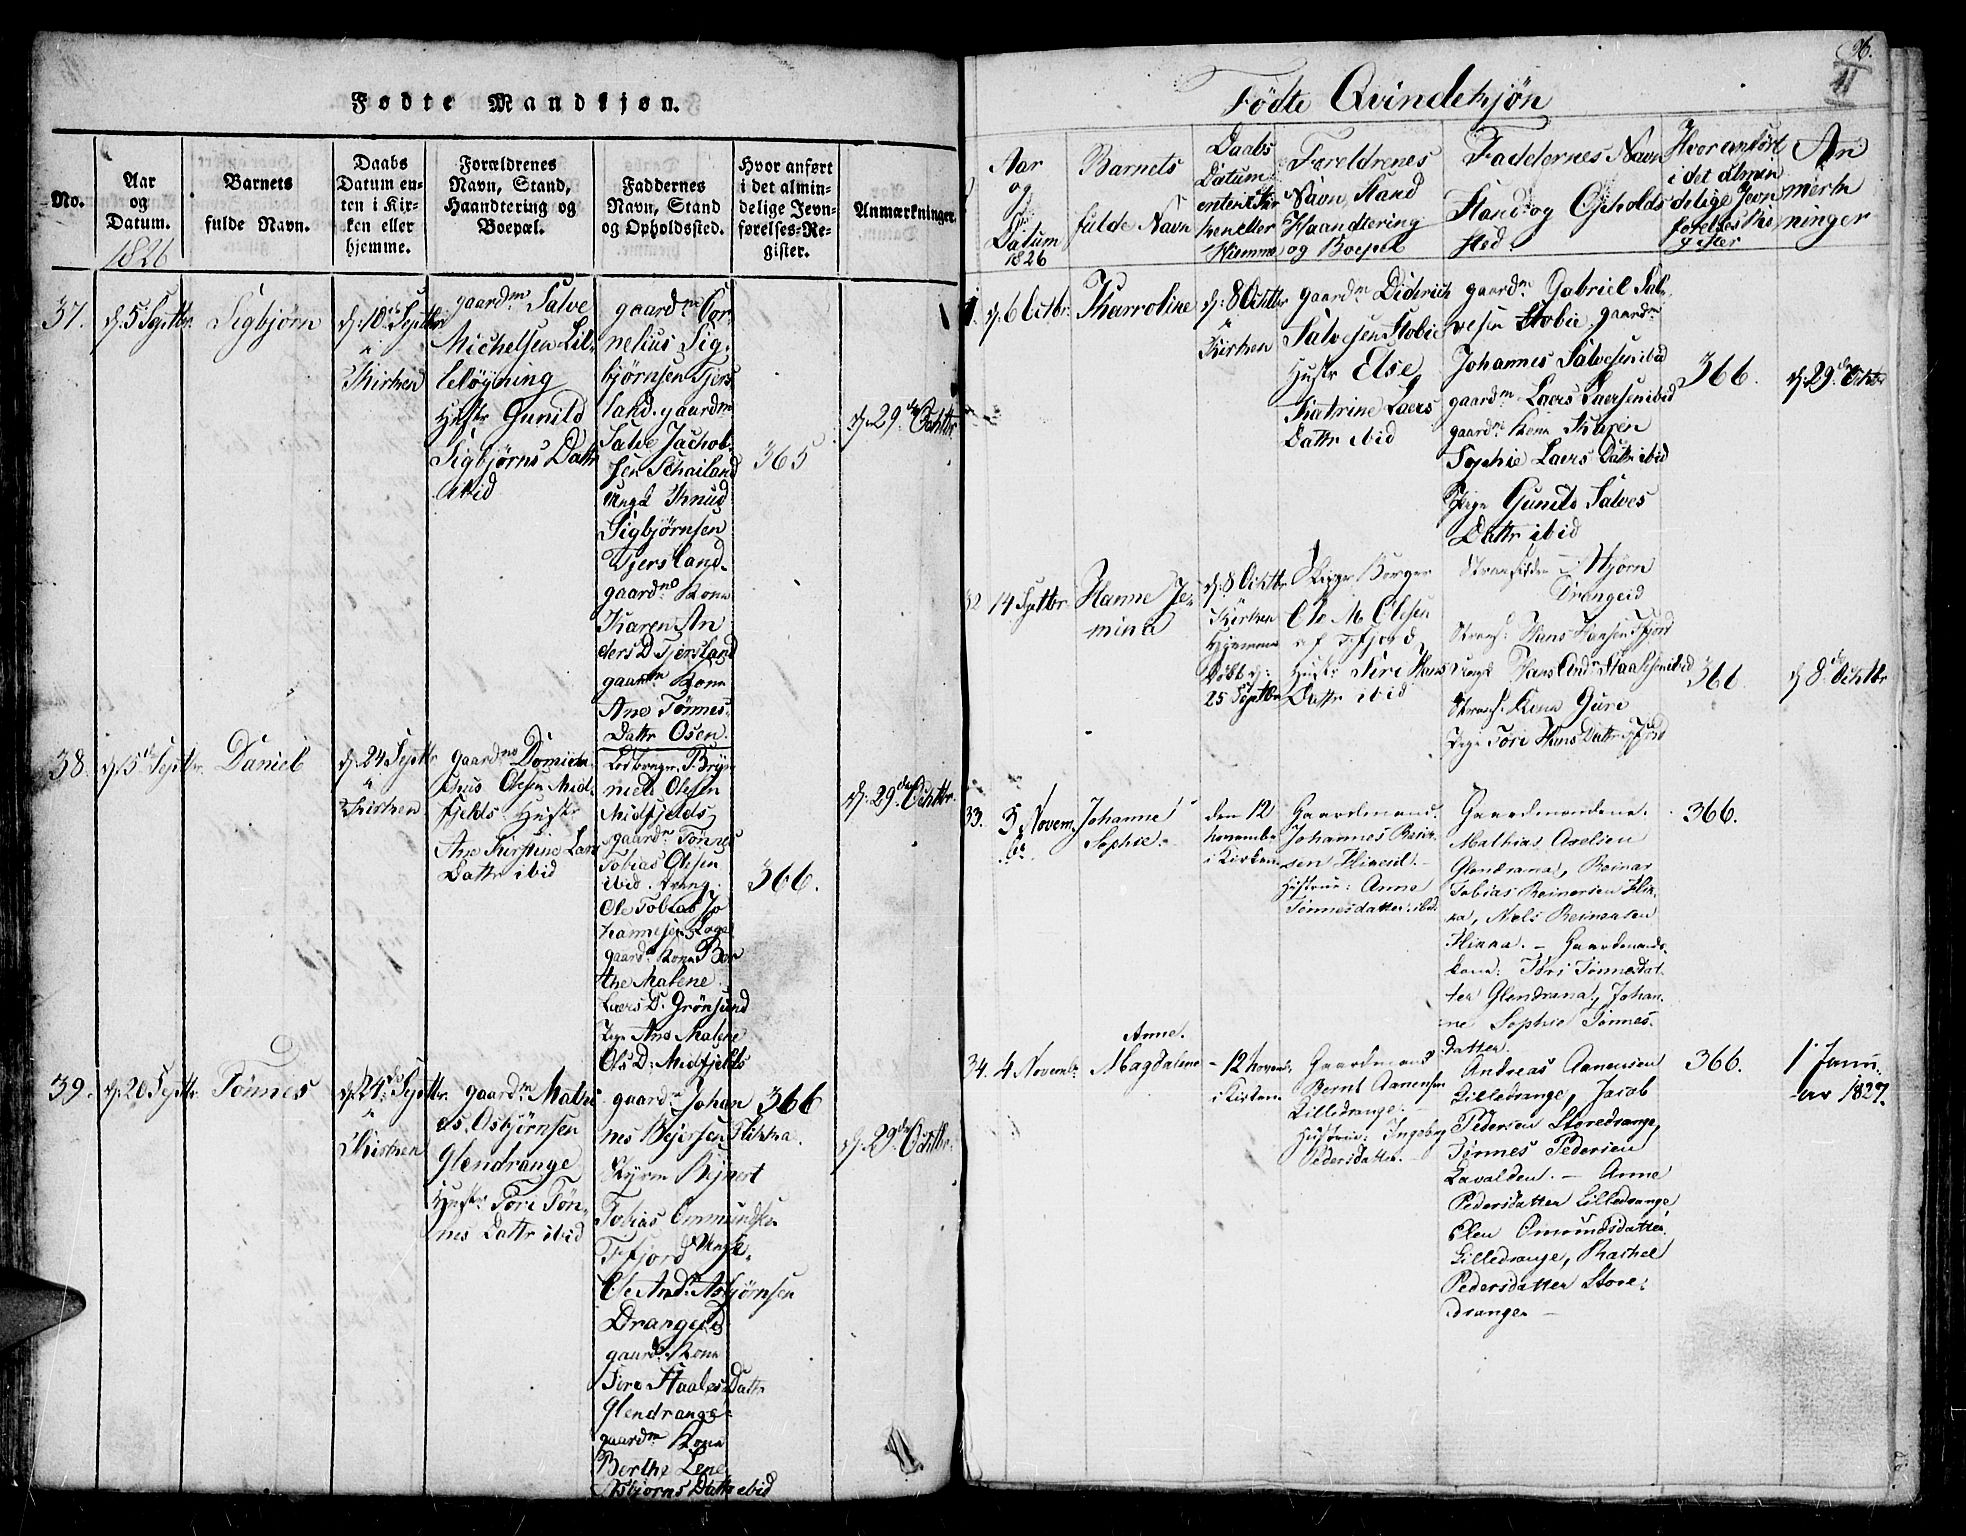 Fødte Mandkjøn.
No.
Aar
og
Datum.
1826
Barnets
fulde Navn.
Daabs
Datum en-
ten i Kir-
ken eller
hjemme.
Forældrenes
Navn, Stand,
Haandtering og
Boepæl.
Faddernes
Navn, Stand
og Opholdssted.
Hvor anført
i det almin-
delige Jevn-
førelses-Re-
gister.
Anmærkninger.
37.
d. 5 Septbr.
Sigbjørn
d. 10 Septbr
i
Kirken
gaardm Salve
Michelsen Lil-
leløgning
Hustr Gunild
Sigbjørns Dattr
ibid
gaardm Cor-
nelius Sig-
bjørnsen Tjers
land. gaardm
Salve Jachob-
sen Schailand
Ungk Knud
Sigbjørnsen
Tjersland.
gaardm Kone
Karen An
ders D Tjersland
gaardm Kone
Ane Tønnes-
Dattr Osen.
365
d. 29de Ochtbr
38.
d. 15de Septbr.
Daniel
d. 24 Septbr
i
Kirken
gaardm
Olesen Mid-
fjelds Hustr
Ane Kirstine Lars
Dattr ibid
niel Olesen
Midfjelds
gaardm Tønnes
Tobias Olesen
ibid.
Ole Tobias Jo
hannesen
gaardm Kone Ber
the Malene
Laers D. Grønsund
Pige Ane Malene
Ols D. Midfjelds
366.
d. 29de Ochtbr.
39.
d. 20 Septbr.
Tønnes
d. 24de Septbr.
i
Kirken
gaardm Mathi
as Osbjørnsen
Glendrange
Hustr Tori Tøn-
nes Dattr ibid
gaardm Johan
nes Flikka.
Tobias Ommunds
Fjord Ungk.
Ole Andr Asbjørnsen
Drangeid
gaardm Kone
Siri Staales Dattr
Glendrange
gaardm Kone
Berthe Lene
Asbjørns Dattr ibid
366
d. 29de Ochtbr.
96.
11
Födte Qvindekjön
Aar
og
Datum
1826
Barnets
fulde Navn
Daabs
Datum
enten i Kir
ken eller
Hiemme
Foreldrenes
Navn Stand
Haandtering
og Boepel
Faddernes Navn
Stand og Opholds
sted
Hvor anført
i det almin
delige Jevn
førelses Re
gister
An
mærk
ninger
31.
d. 6 Octbr.
Tharroline
d. 8 Ochtbr
i
Kirken
gaardm Diderich
Salvesen Stobie
Hustr Else
Katrine Laers
Dattr ibid
gaardm Gabriel Sal-
vesen Stobie, gaardm
Johannes Salvesen ibid
gaardm Laers Laersen ibid
gaardm Kone Karen
Sophie Laers Dattr ibid
Pige Gunild Salves
Dattr ibid
366.
d. 29de Ochtbr
32
14 Septbr.
Hanne Je-
mina
d. 8 Ochtbr
Kirken
Hjemme
Døbt d.
25 Septbr
Skipper Borger
Ole M Olesen
af Fjord
Hustr Siri Hans
Dattr ibid
Hjörn
Drangeid
Strands. Hans Hansen Fjord
Ungk Hans Andr Staalesen ibid
Strands. Kone Guri
Pige Tori Hans Dattr Fjord
366
d 8de Ochtbr
33.
5 Novem-
br
Johanne
Sophie.
den 12
November
i Kirken.
Gaardmand.
Johannes Reier-
sen Flikeid.-
Hustrue: Anne
Tønnesdatter ibid.
Gaardmændene.
Mathias Axelsen
Glendrana, Reinar
Tobias Reinersen Flik-
ka, Niels Reinersen
Flikka. - Gaardmands-
kone: Tori Tønnesdat-
ter Glendrana, Johan-
ne Sophie Tønnes-
datter.
366.
34.
4 Novembr.
Anne.
Magdalene
- 12 Novemb.
i Kirken.
Gaardmand
Bernt Aanensen
Lilledrange:
Hustrue: Ingeborg
Pedersdatter.
Andreas Aanensen
Lilledrange, Jacob
Pedersen Storedrange,
Tønnes Pedersen
Lavolden. - Anne
Pedersdatter Lilledrange
Elen Omundsdatter
Lilledrange, Rachel
Pedersdatter Store-
drange -
366.
1 Janu-
ar 1827.